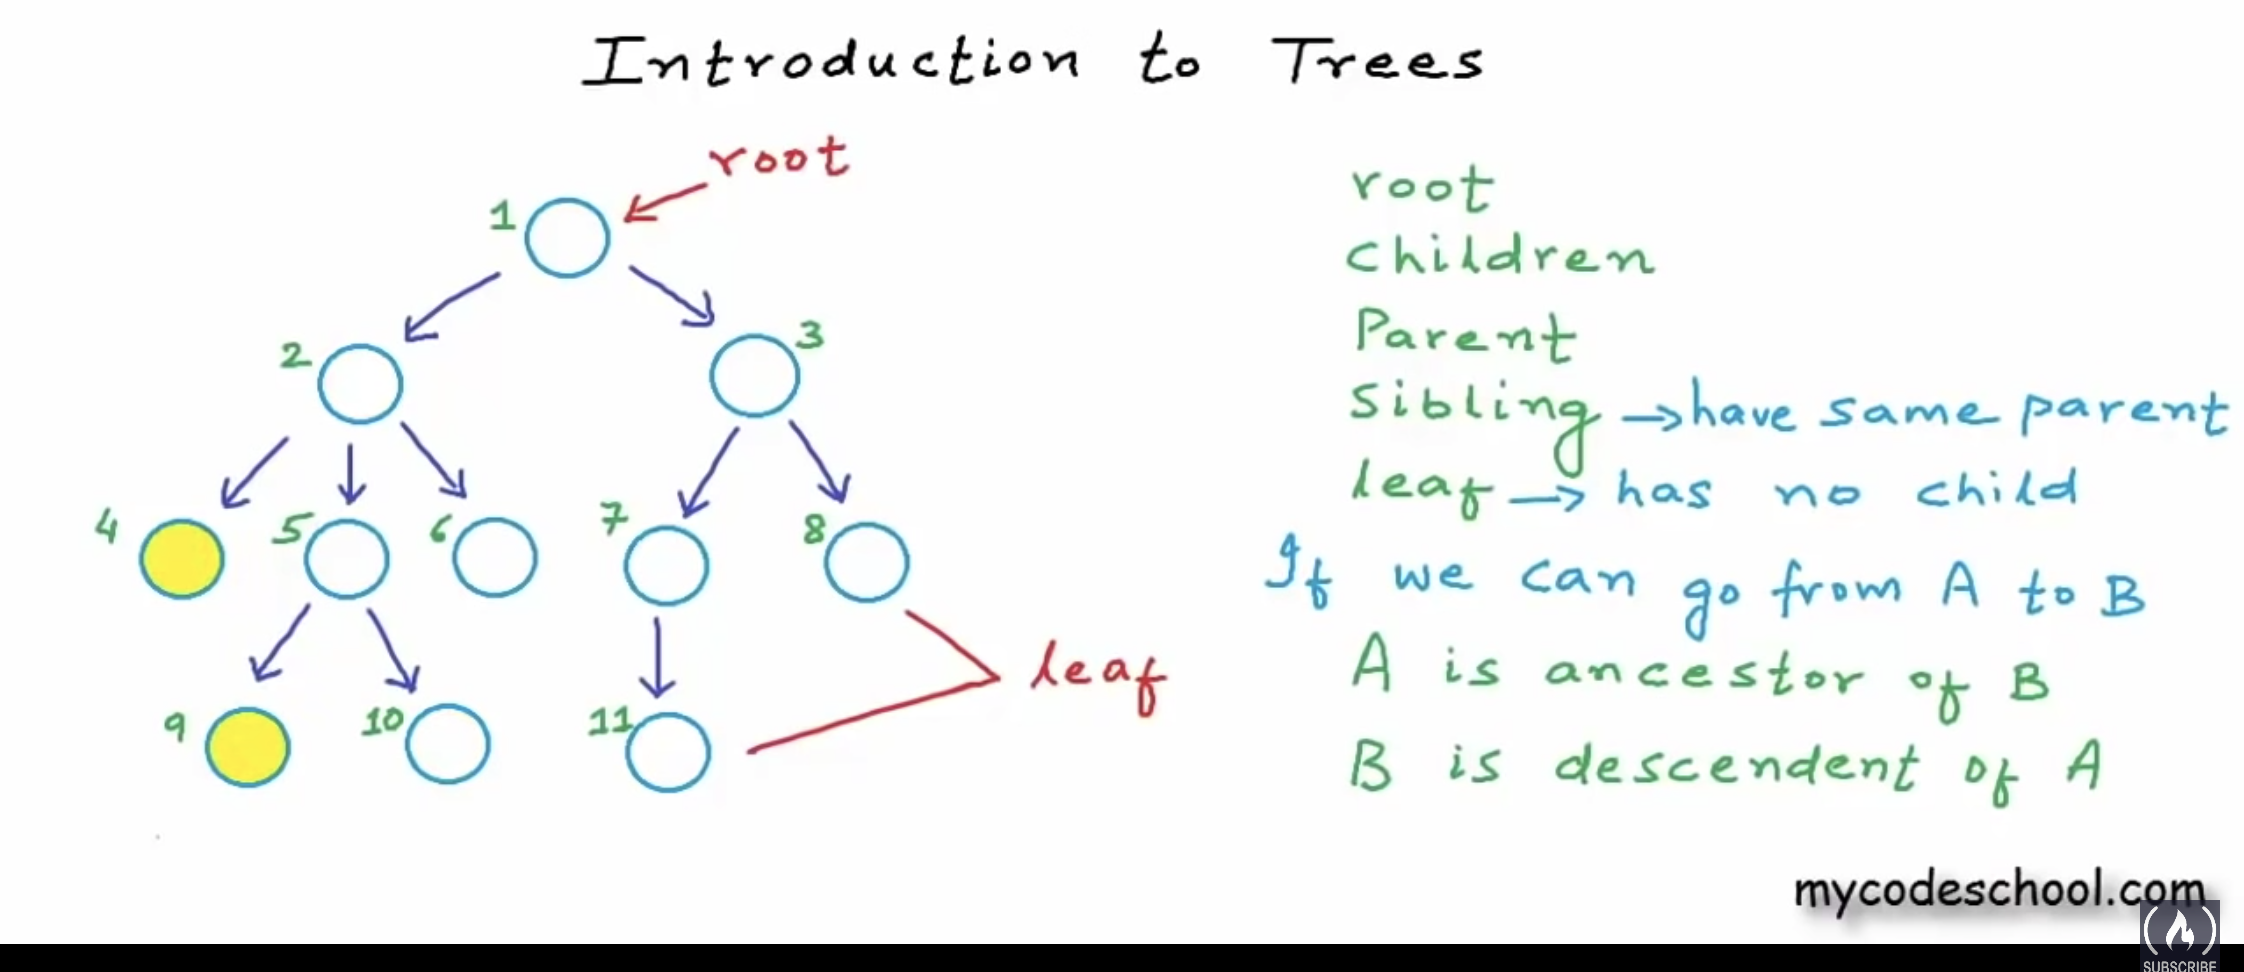 Introduction to Trees
root
1
2
3
4
5
6
7
8
9
10
11
leaf
root
children
Parent
sibling → have same parent
leaf → has no child
If we can go from A to B
A is ancestor of B
B is descendent of A
mycodeschool.com
SUBSCRIBE